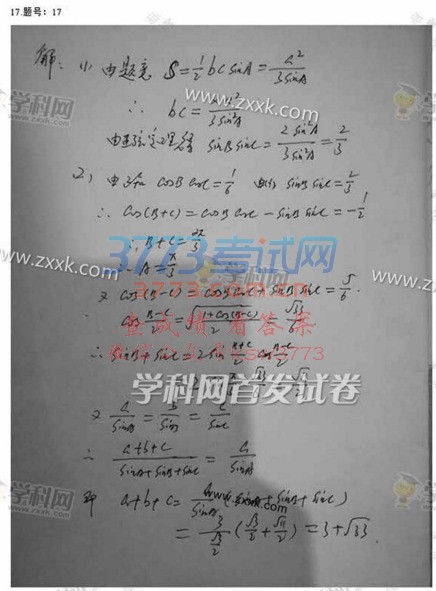 17.题号：17
解：(1) 由题意 S=½bc sinA=a²/(3sinA)
∴ bc=a²/(3sin²A)
由正弦定理得 sinB sinC=sin²A/(3sin²A)
(2) 由 cosB cosC=1/6 sinB sinC=
∴ cos(B+C)=cosB cosC - sinB sinC=-1/2
∴ B+C=2π/3
A=π/3
又 cos(B-C)=cosB cosC+sinB sinC=5/6.
cos(B-C)/2=√((1+cos(B-C))/2)=√33/6
∴ sinB+sinC=2sin(B+C)/2 cos(B-C)/2
√33/6 = √11/2
又 a/sinA=b/sinB=c/sinC
∴ (a+b+c)/(sinA+sinB+sinC)=a/sinA
即 a+b+c=a/sinA (sinA+sinB+sinC)
=3/(√3/2) (√3/2+√11/2)=3+√33.
学科网
www.zxxk.com
3773考试网
www.3773.com.cn
查成绩看答案
学科网首发试卷